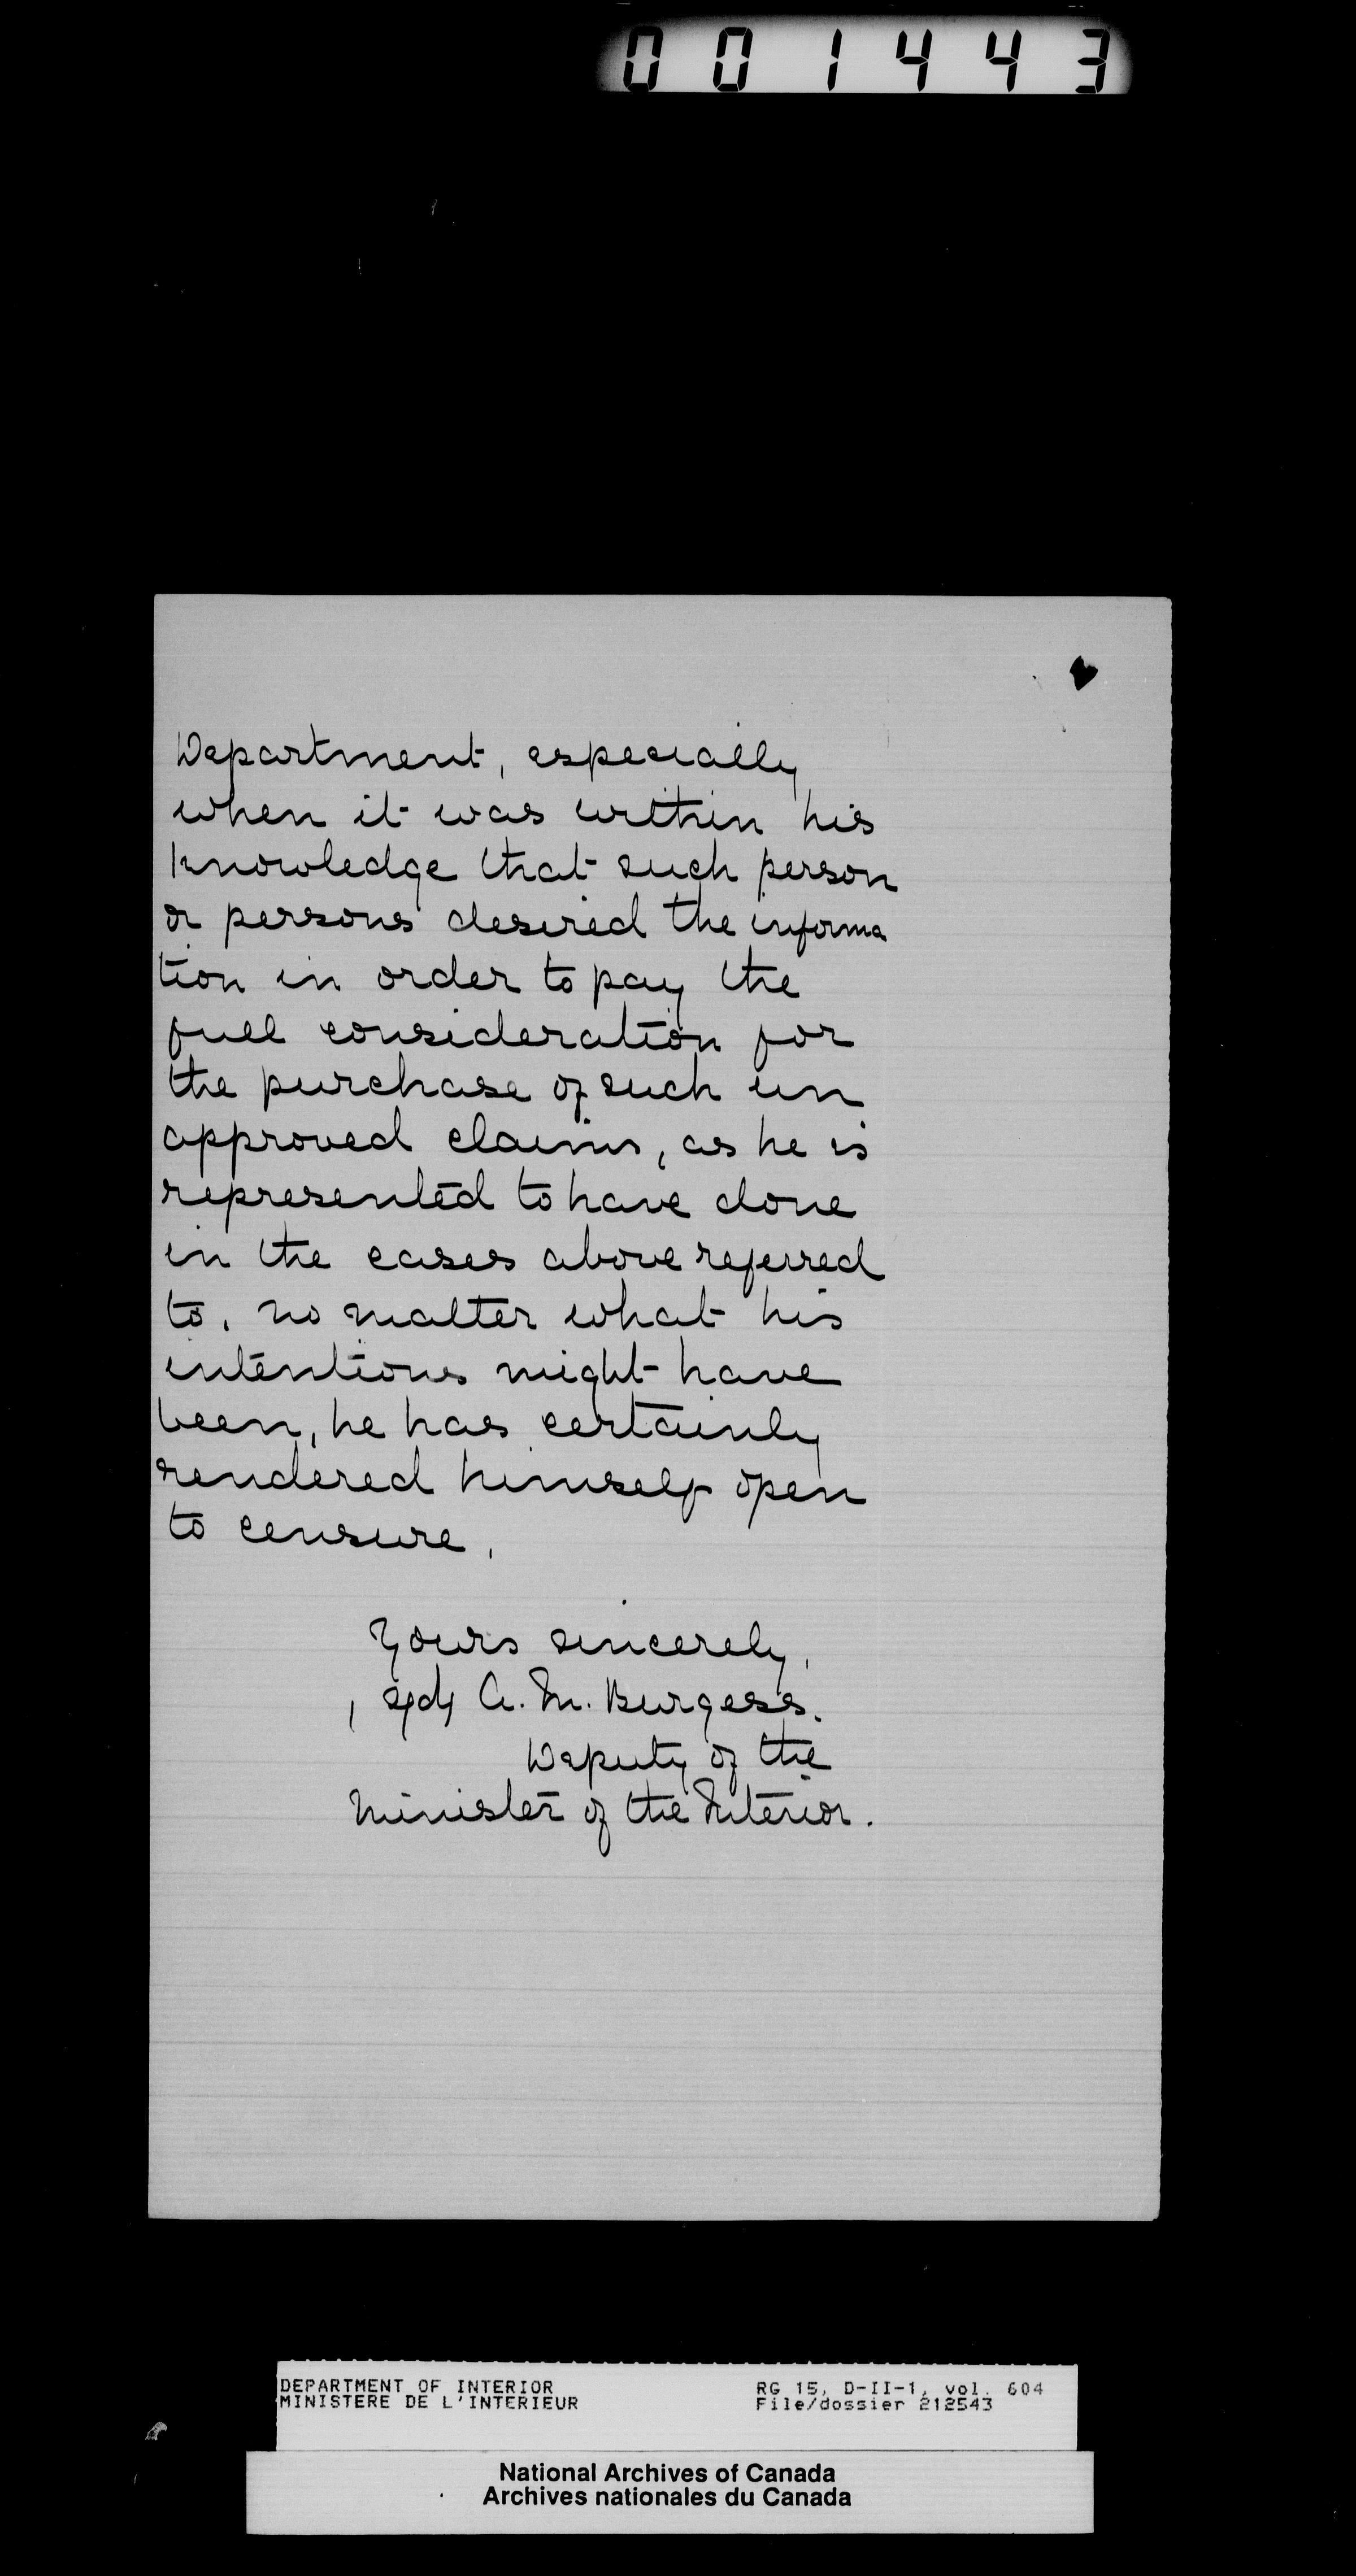 001443
Department, especially
when it was within his
knowledge that such person
or persons desired the informa
tion in order to pay the
full consideration for
the purchase of such un
approved claims, as he is
represented to have done
in the cases above referred
to. no matter what his
intentions might have
been, he has certainly
rendered himself open
to censure.
Yours sincerely,
sgd A. M. Burgess.
Deputy of the
Minister of the Interior.
DEPARTMENT OF INTERIOR RG 15, D-II-1, vol. 604
MINISTERE DE L'INTERIEUR File/dossier 212543
National Archives of Canada
Archives nationales du Canada